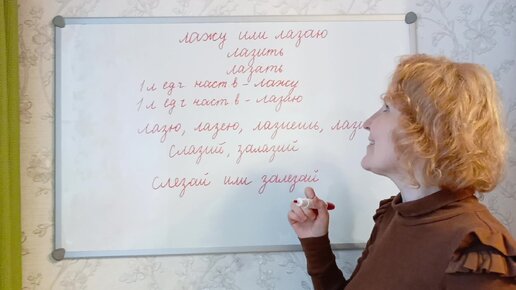 лажу или лазаю
лазить
лазать
1 л ед ч наст в - лажу
1 л ед ч наст в - лазаю
лазю, лазею, лазиешь,
Слазий, залазий
Слезай или залезай